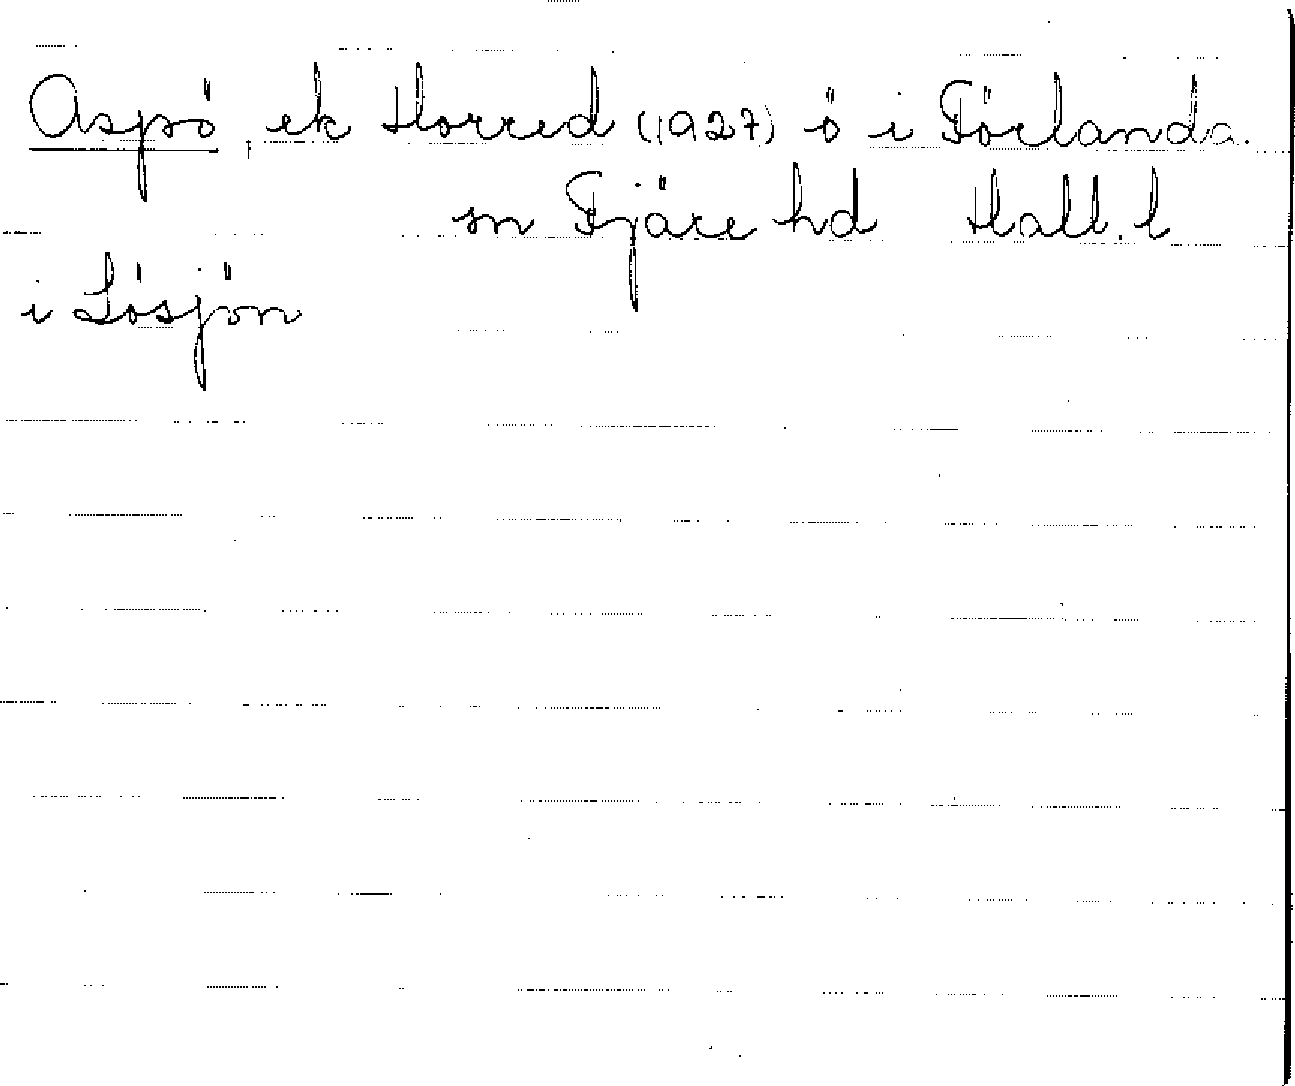 Aspö, ek Horred (1927) ö i Förlanda.
sn Fjäre hd Hall. l
i Lösjön